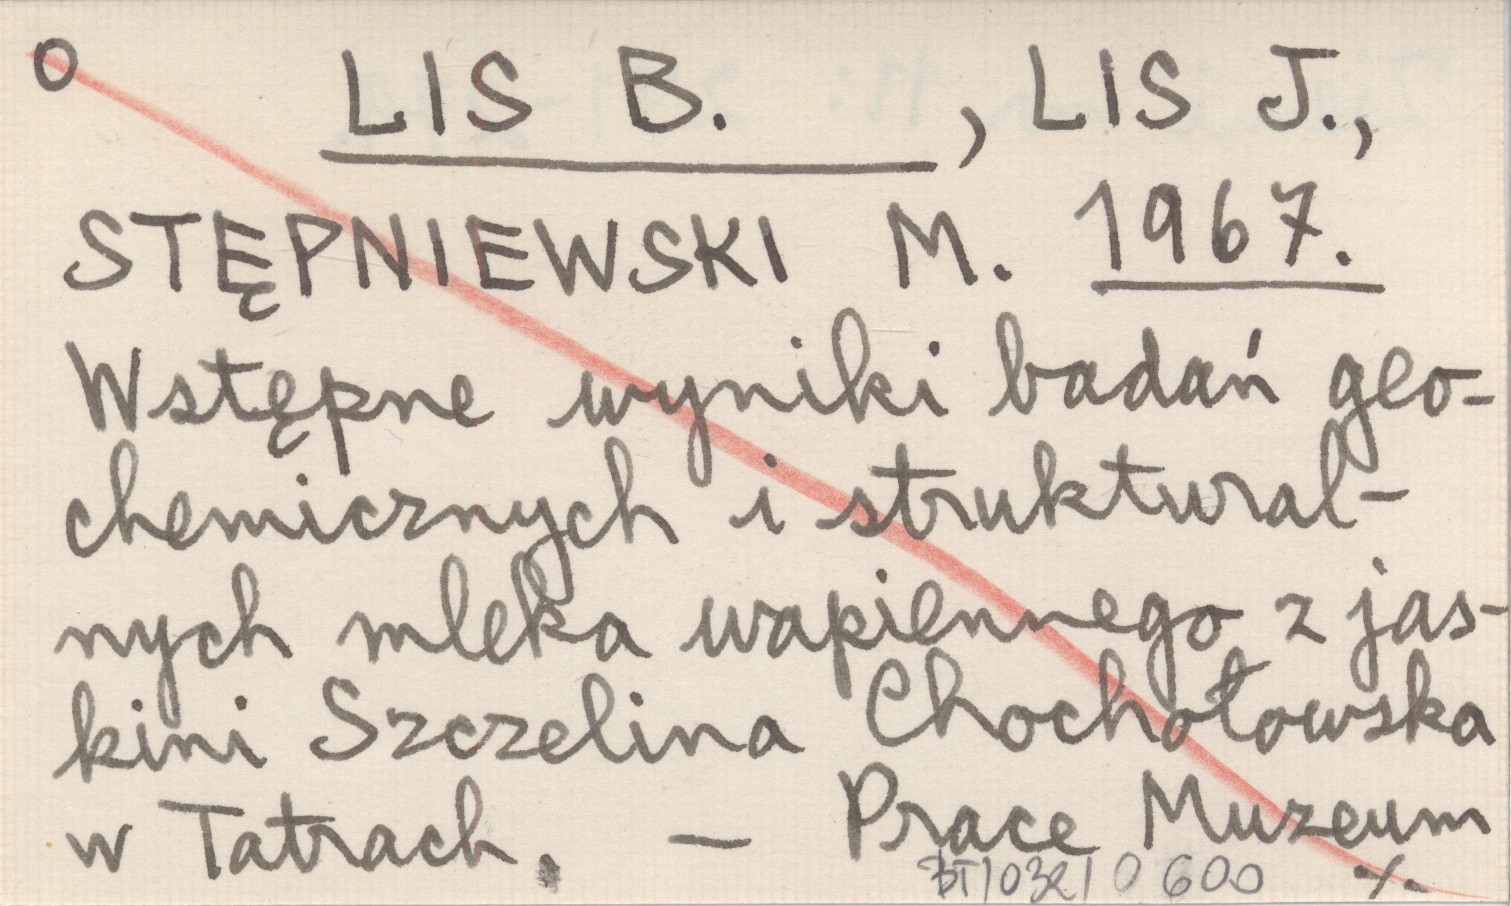 O
LIS B. , LIS J.,
STĘPNIEWSKI M. 1967.
Wstępne wyniki badań geo-
chemicznych i struktural-
nych mleka wapiennego z jas-
kini Szczelina Chochołowska
w Tatrach. — Prace Muzeum
0600 ./.